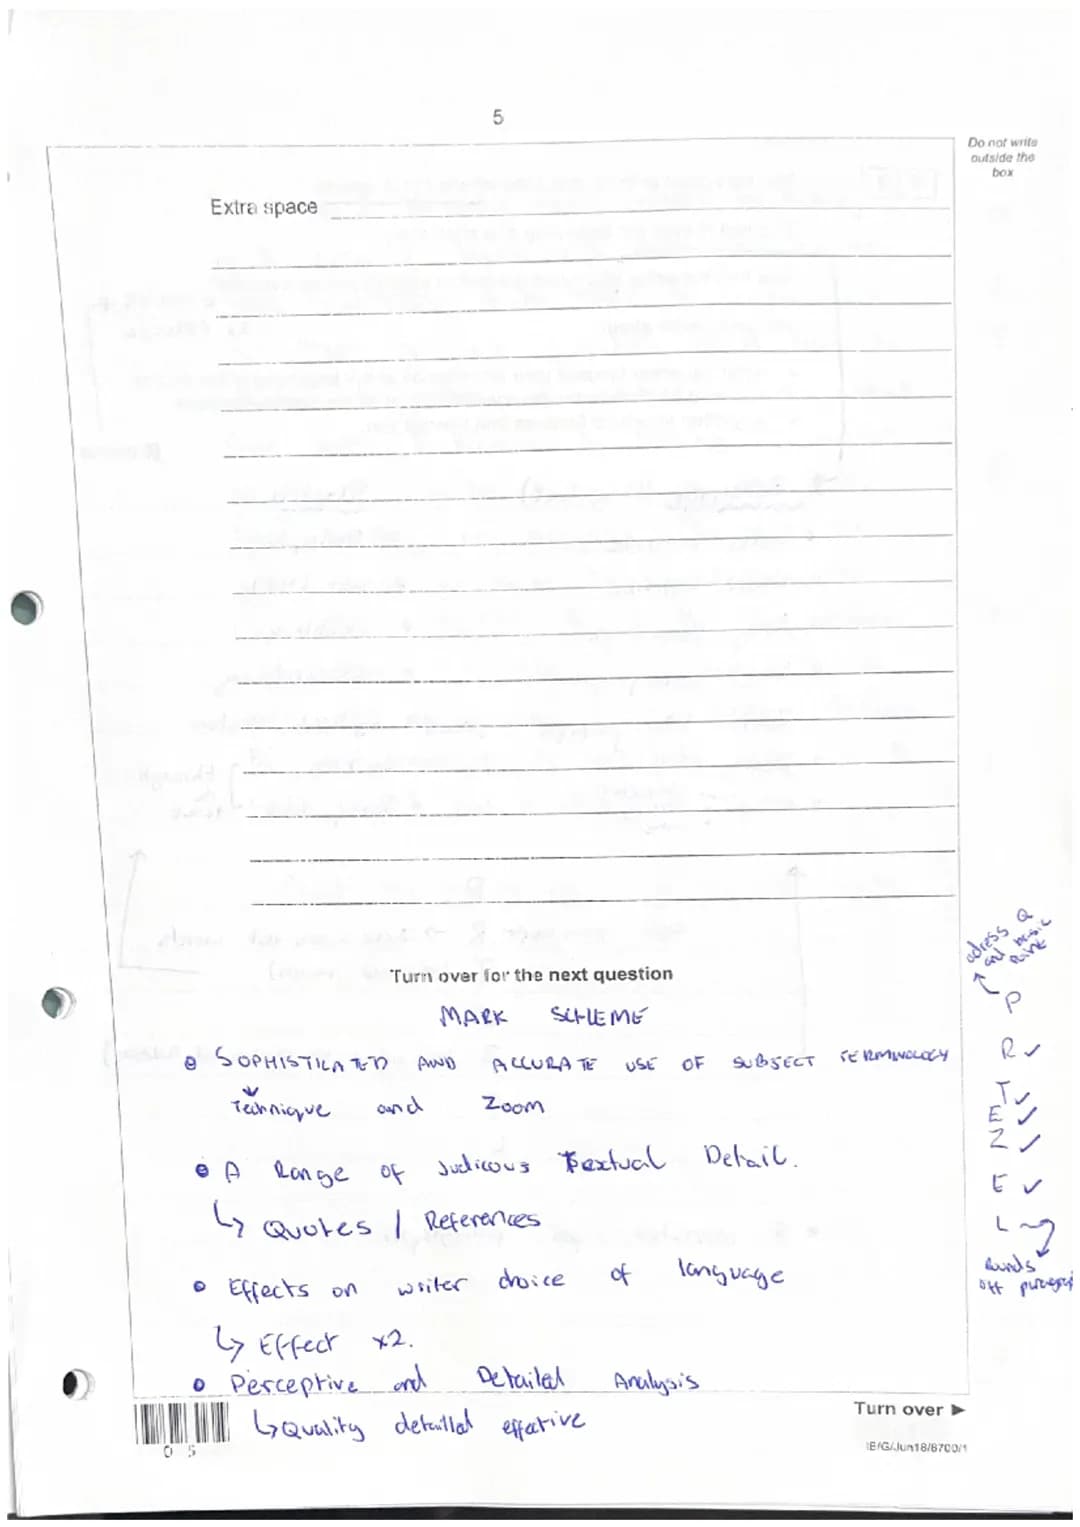 5
Do not write
outside the
box
Extra space
adress Q
and basic
point
P
R ✓
T ✓
E ✓
Z ✓
E ✓
L
Rounds
off
Turn over for the next question
MARK SCHEME
SOPHISTICATED AND ACCURATE USE OF SUBJECT TERMINOLOGY
Technique and Zoom
A Range of Judicous Textual Detail.
↳ Quotes / References
Effects on writer choice of language
↳ Effect x2.
Perceptive and Detailed Analysis
↳ Quality detaillal effective
Turn over ►
0 5
IB/G/Jun18/8700/1